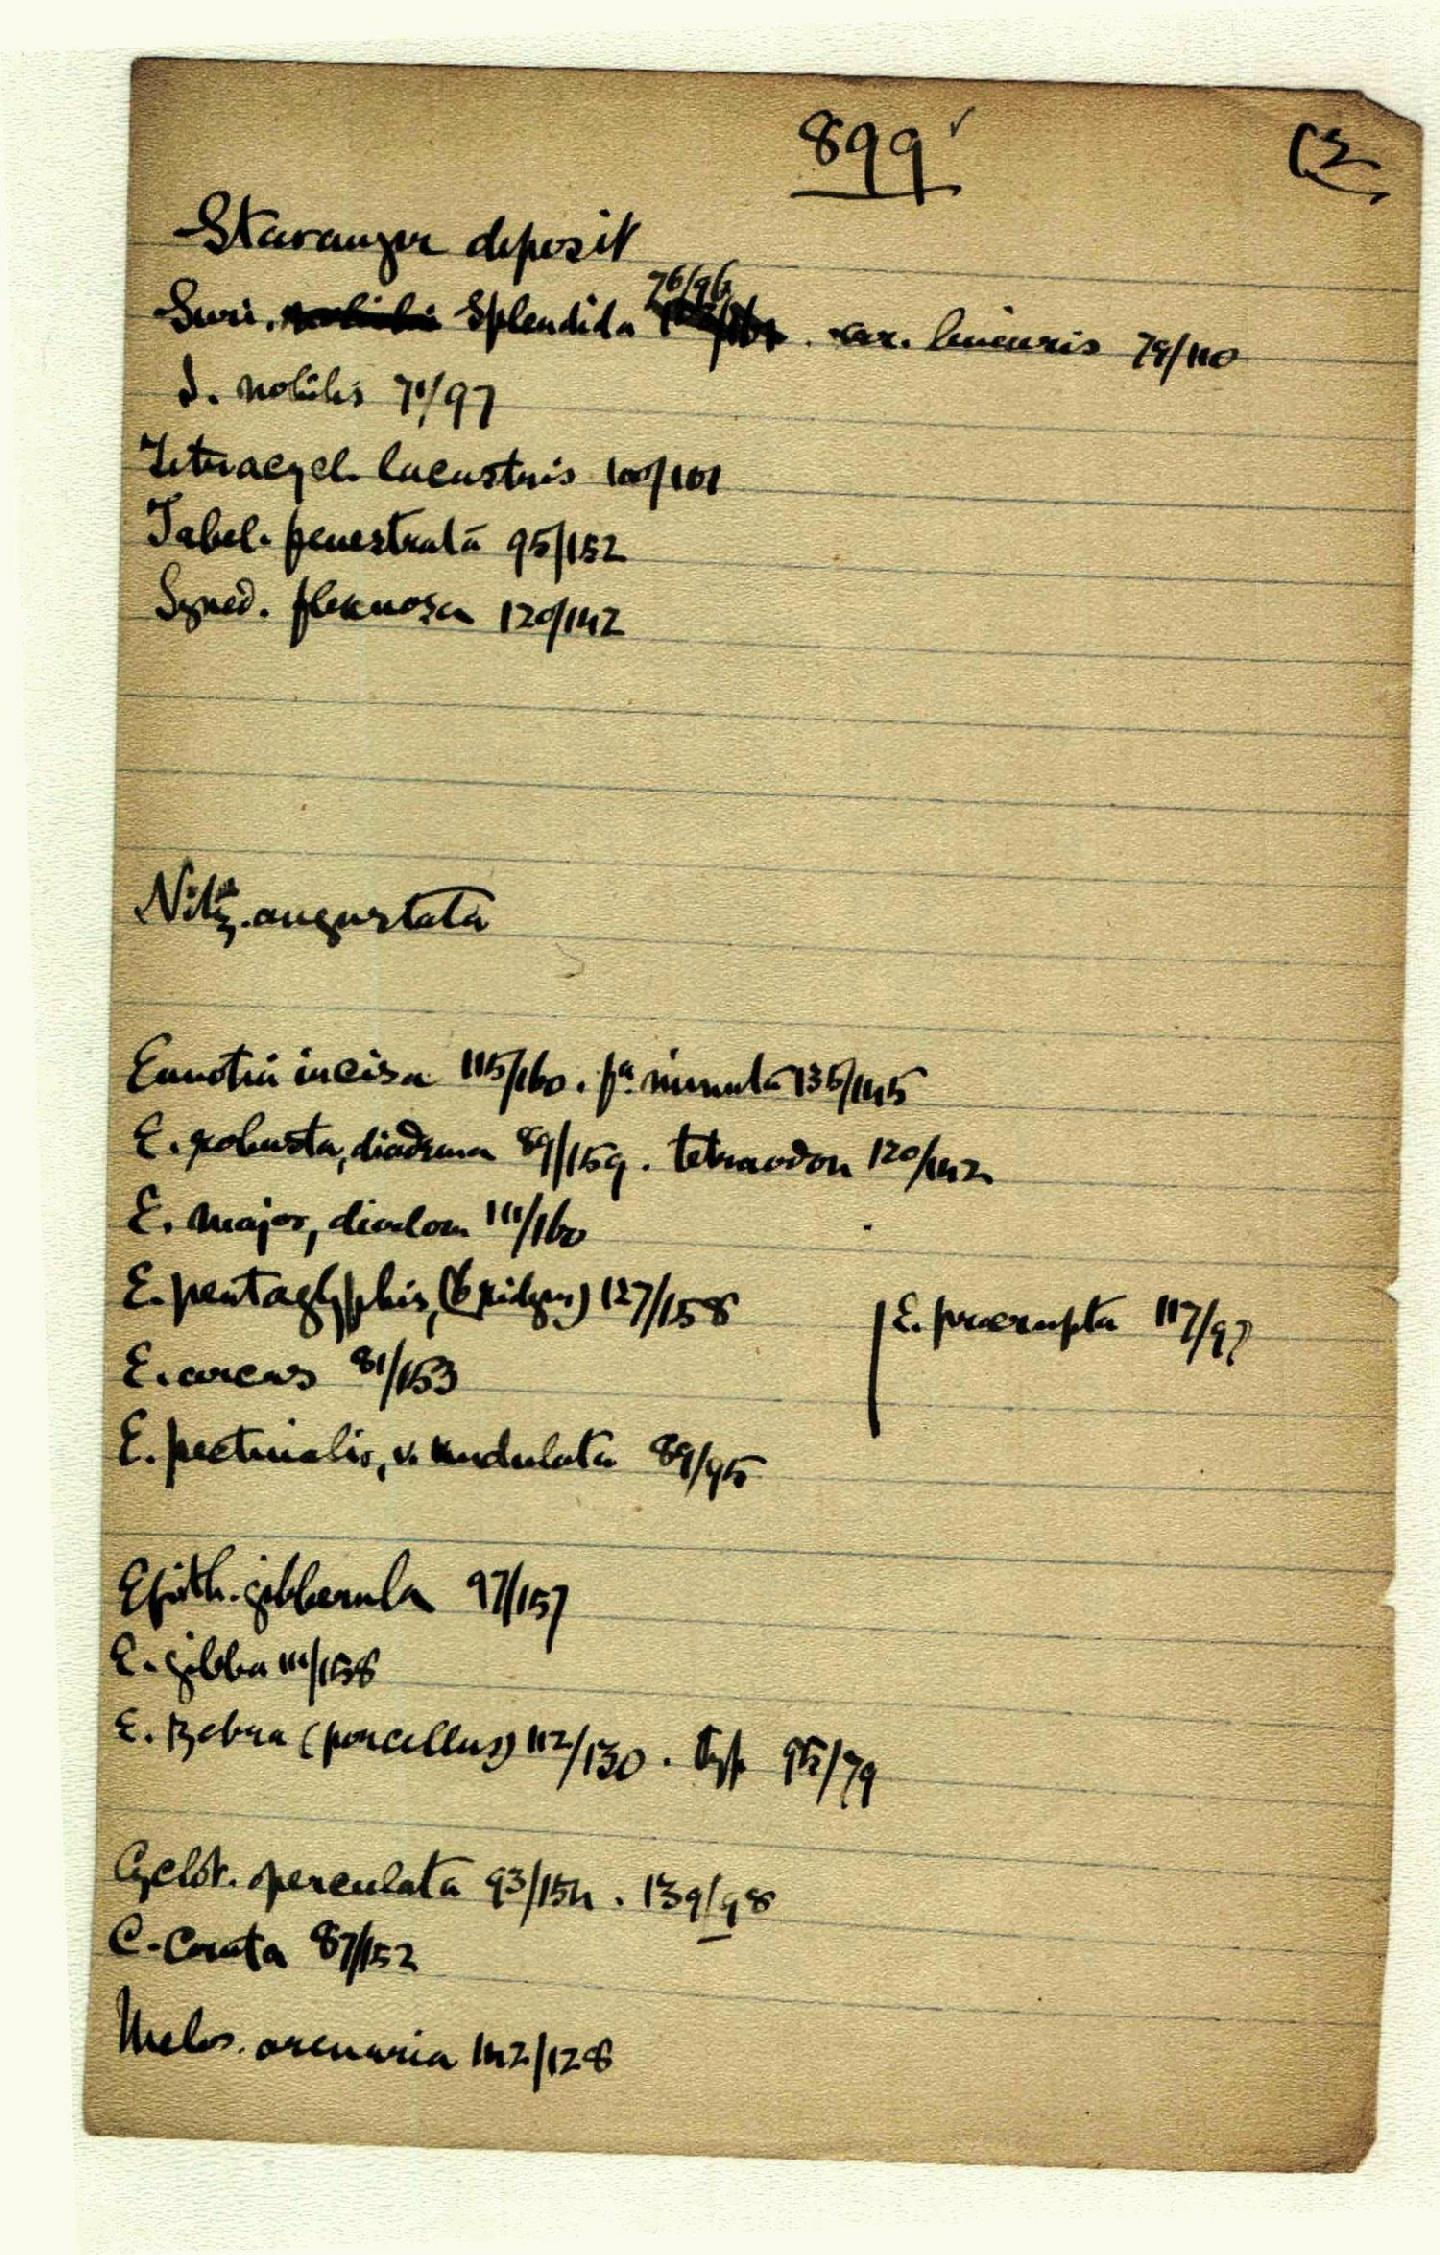 899 ✓ (2
Stavanger deposit
Suri. nobilis splendida 76/96 . var. linearis 79/110
S. nobilis 71/97
Tetracycl. lacustris 100/101
Tabel. fenestrata 95/152
Syned. flexuosa 120/142
Nitz. angustata
Eunotia incisa 115/160 . fa. minuta 135/145
E. robusta, diadema 89/159 . tetraodon 120/142
E. major, diodon 111/160
E. pentaglyphis, (6 ridges) 127/158
E. praerupta 117/97
E. arcus 81/153
E. pectinalis, v. undulata 89/95
Epith. gibberula 97/157
E. gibba 111/158
E. Zebra (porcellus) 112/130 . typ 95/79
Cyclot. operculata 93/154 . 139/98
C. Comta 87/152
Melos. arenaria 142/128